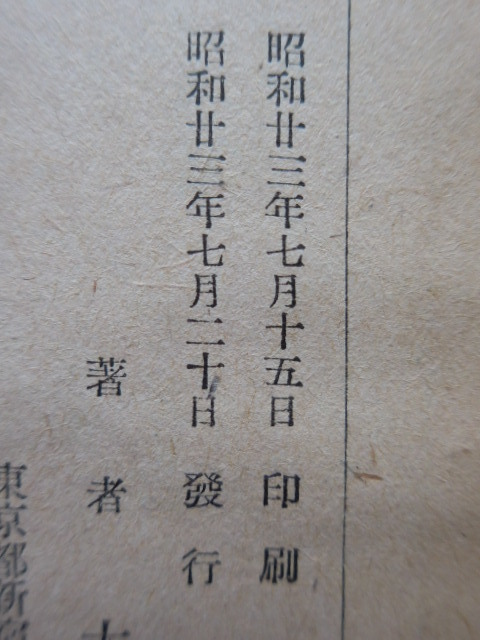 昭和廿三年七月十五日 印刷
昭和廿三年七月二十日 發行
著者
東京都新